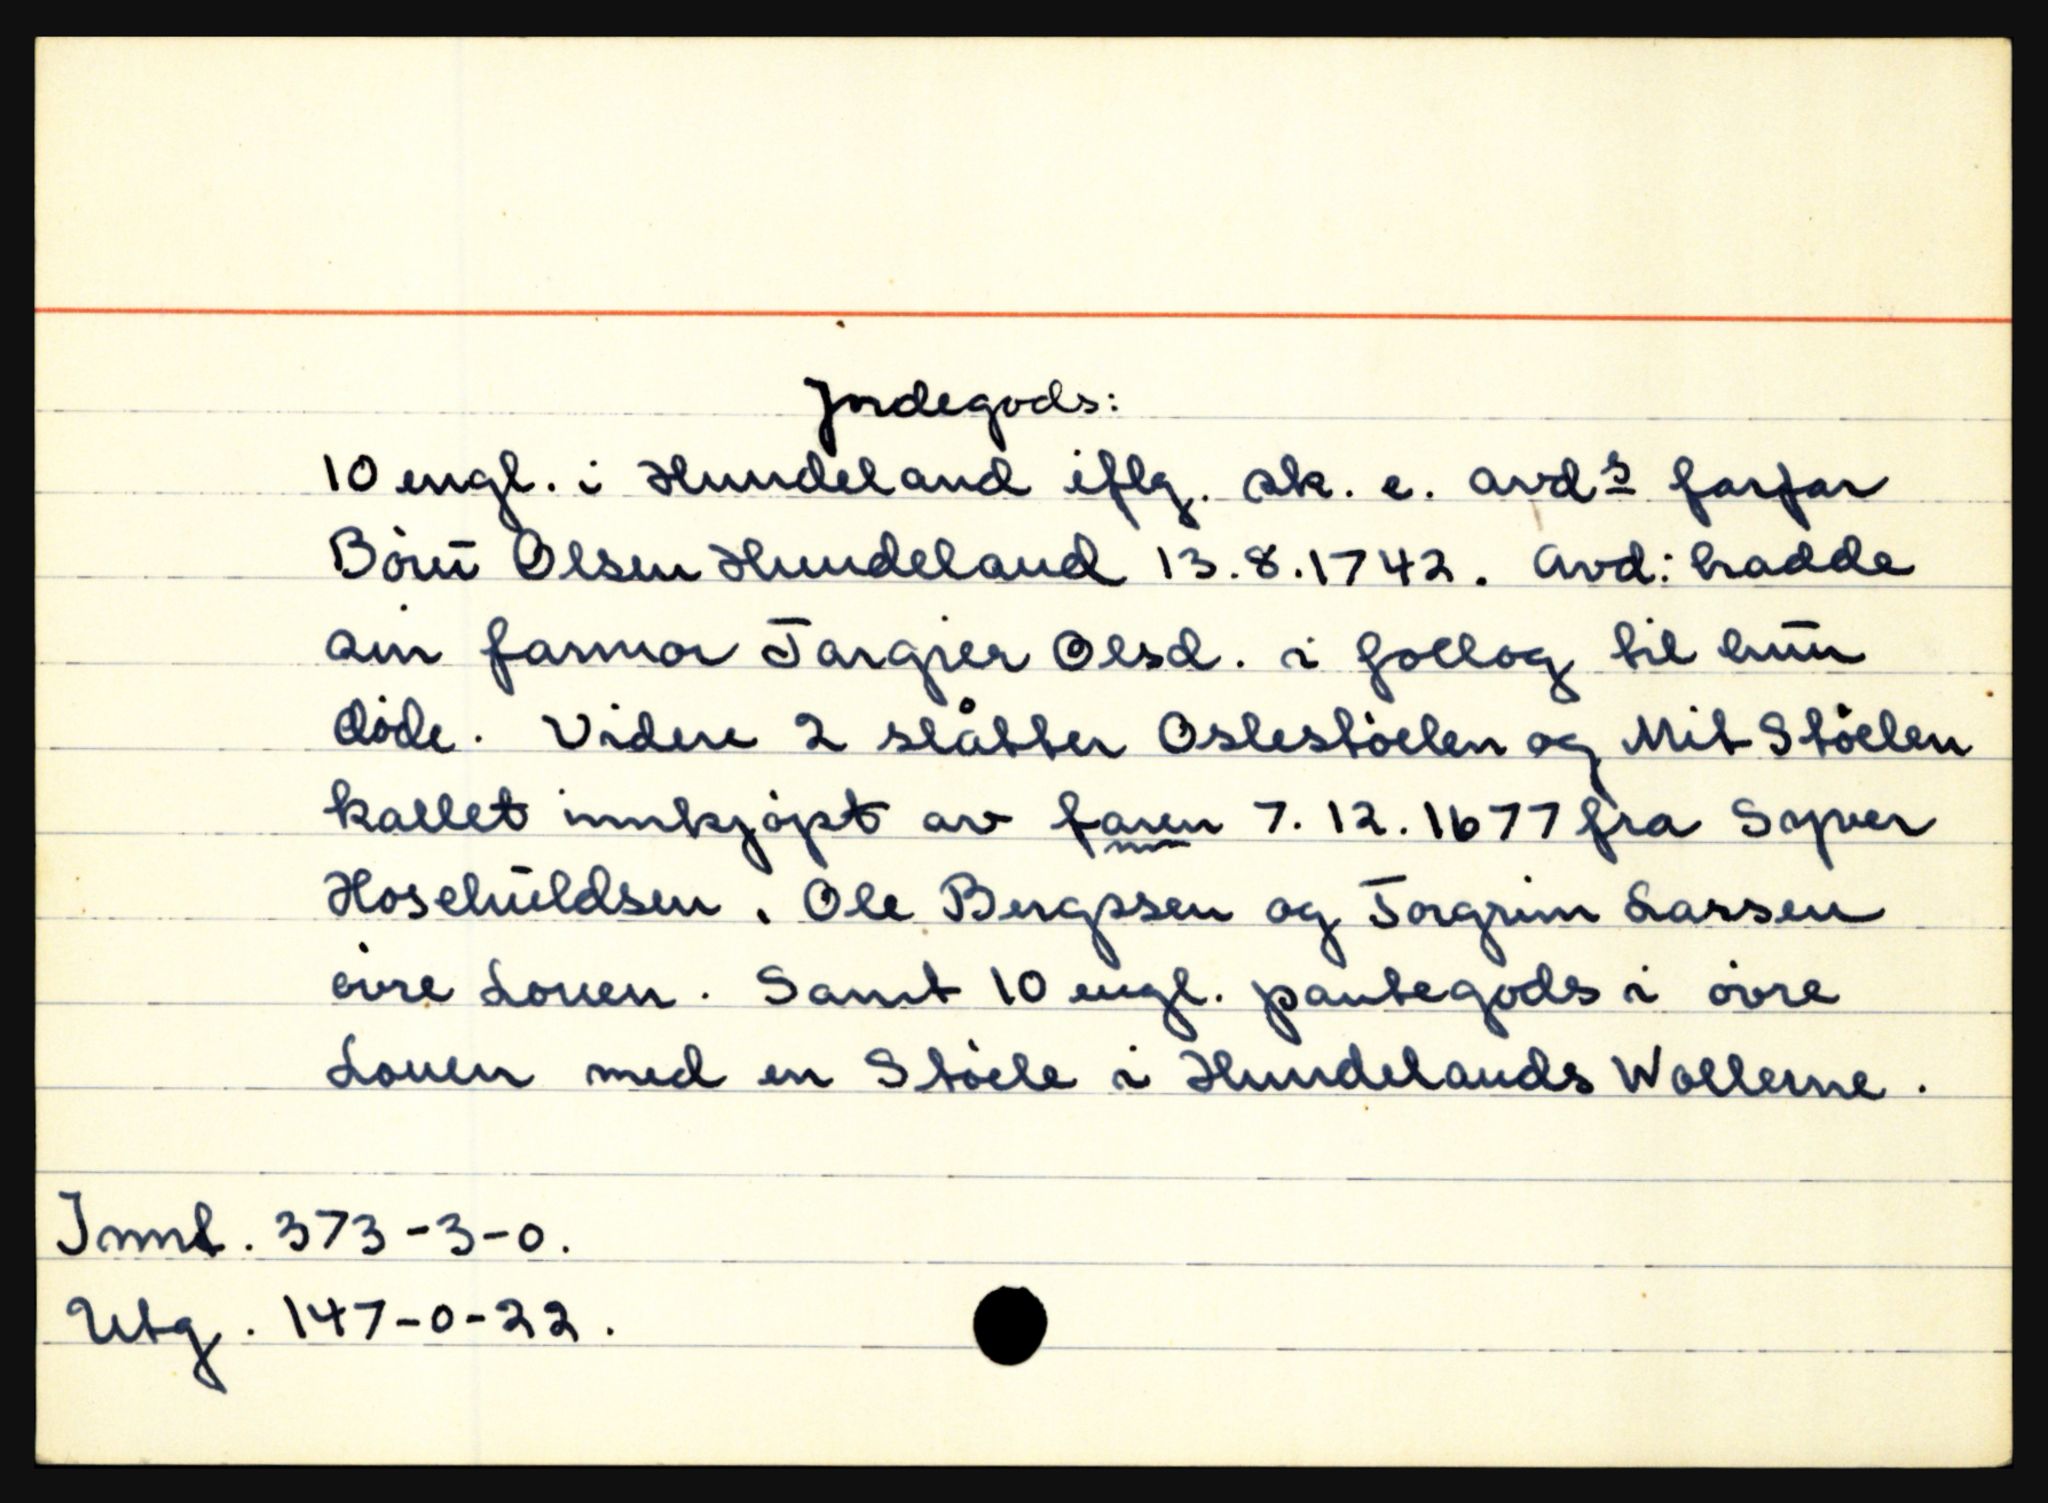 Jordegods:
10 engl. i Hundeland iflg. sk. e. avds farfar
Börü Olsen Hundeland 13.8.1742. Avd: hadde
sin farmor Targier Olsd. i follog til hun
döde. Videre 2 slåtter Oslestöelen og Mit Stöelen
kallet innkjöpt av faren 7.12.1677 fra Syver
Hoschuldsen, Ole Bergssen og Torgrim Larssen
övre Louen. Samt 10 engl. pantegods i övre
Louen med en Stöele i Hundelands Wollerne.
Innt. 373-3-0.
Utg. 147-0-22.